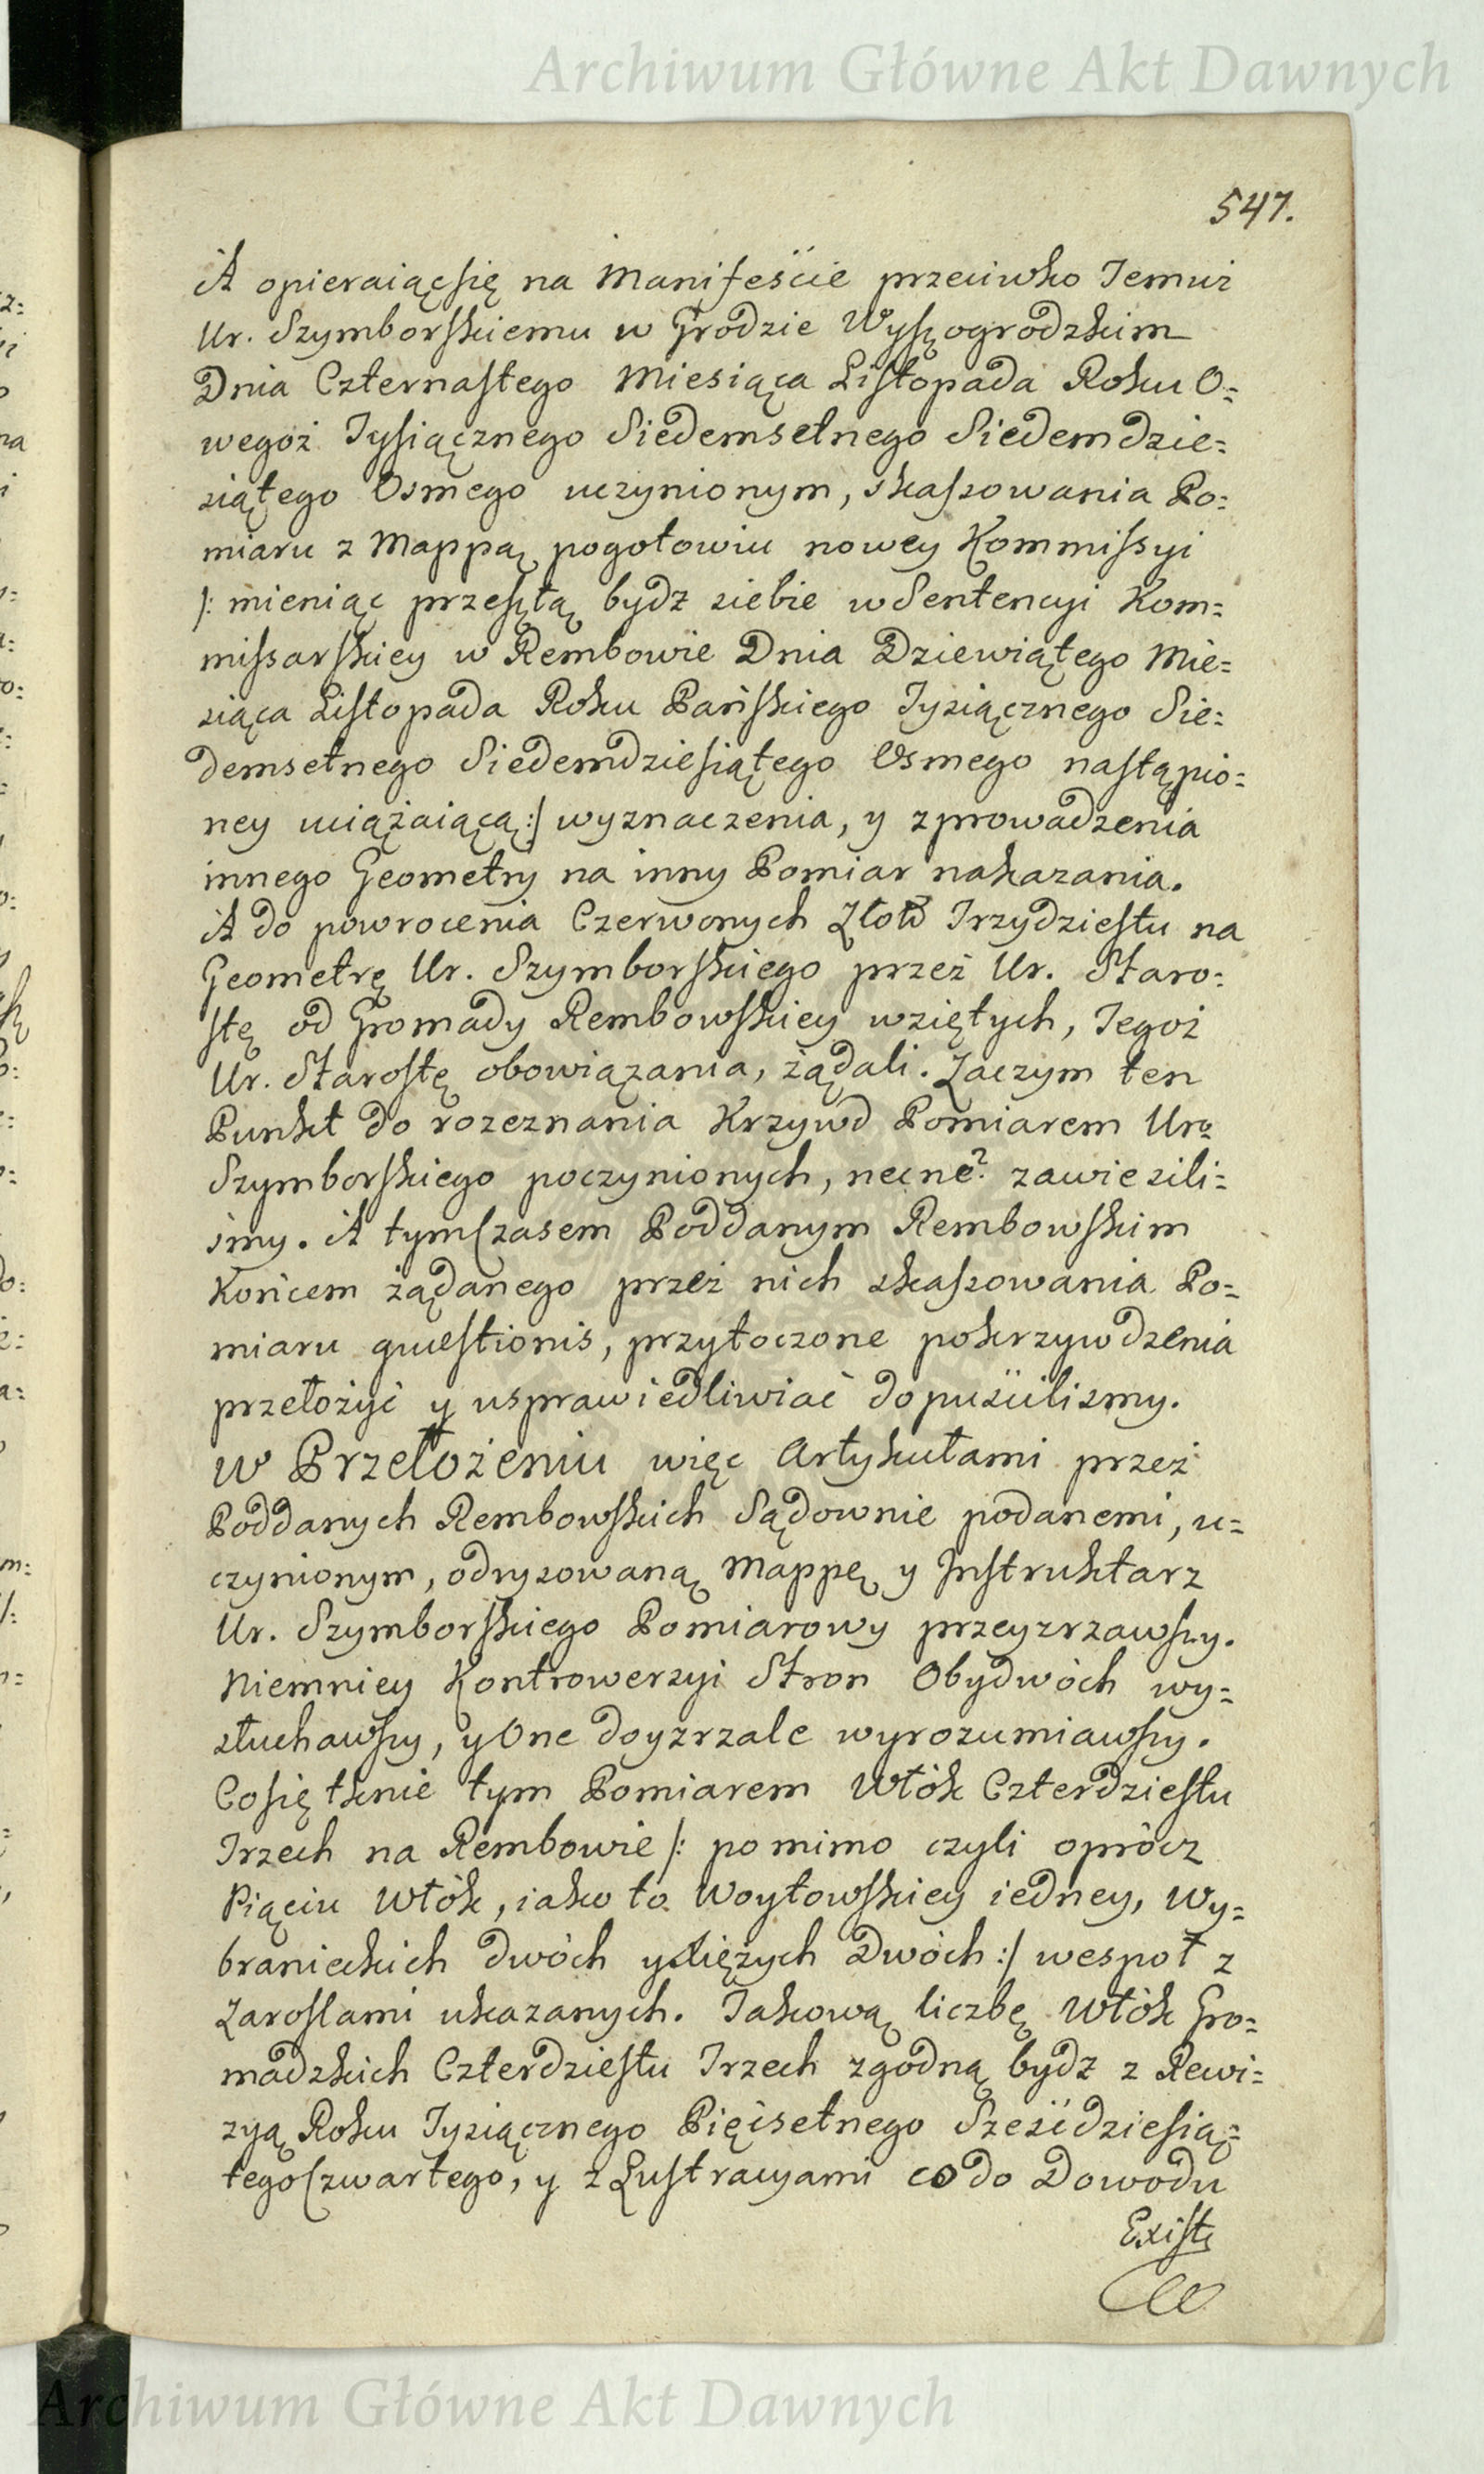 Archiwum Główne Akt Dawnych
547.
A opieraiącsię na Manifeście przeciwko Temuż
Ur. Szymborskiemu w Grodzie Wyszogrodzkim
Dnia Czternastego Miesiąca Listopada Roku O=
wegoż Tysiącznego Siedemsetnego Siedemdzie=
siątego Osmego uczynionym, skassowania Po=
miaru z Mappą pogotowiu nowey Kommissyi
/: mieniąc przeszłą bydz siebie w Sentencyi Kom=
missarskiey w Rembowie Dnia Dziewiątego Mie=
siąca Listopada Roku Pańskiego Tysiącznego Sie=
demsetnego Siedemdziesiątego Osmego nastąpio=
ney uciążaiącą :/ wyznaczenia, y zprowadzenia
innego Geometry na inny Pomiar nakazania.
A do powrocenia Czerwonych Złotd Trzydziestu na
Geometrę Ur. Szymborskiego przez Ur. Staro=
stę od Gromady Rembowskiey wziętych, Tegoż
Ur. Starostę obowiązania, żądali. Zaczym ten
Punkt do rozeznania Krzywd Pomiarem Urᵒ
Szymborskiego poczynionych, necne? zawiesili=
smy. A tymczasem Poddanym Rembowskim
Końcem żądanego przez nich skassowania Po=
miaru questionis, przytoczone pokrzywdzenia
przełożyć y usprawiedliwiać dopuścilismy.
W Przełożeniu więc Artykułami przez
Poddanych Rembowskich Sądownie podanemi, u=
czynionym, odrysowaną Mappę y Instruktarz
Ur. Szymborskiego Pomiarowy przeyzrzawszy.
Niemniey Kontrowerzyi Stron Obydwóch wy=
słuchawszy, y One doyzrzale wyrozumiawszy.
Cosię tknie tym Pomiarem Włók Czterdziestu
Trzech na Rembowie /: pomimo czyli oprócz
Piąciu Włók, iako to Woytowskiey iedney, Wy=
branieckich dwóch y Xiężych Dwóch :/ wespoł z
Zaroslami ukazanych. Takową liczbę Włók Gro=
madzkich Czterdziestu Trzech zgodną bydz z Rewi=
zyą Roku Tysiącznego Pięćsetnego Sześćdziesią=
tego Czwartego, y z Lustracyami co do Dowodu
Exist
Archiwum Główne Akt Dawnych